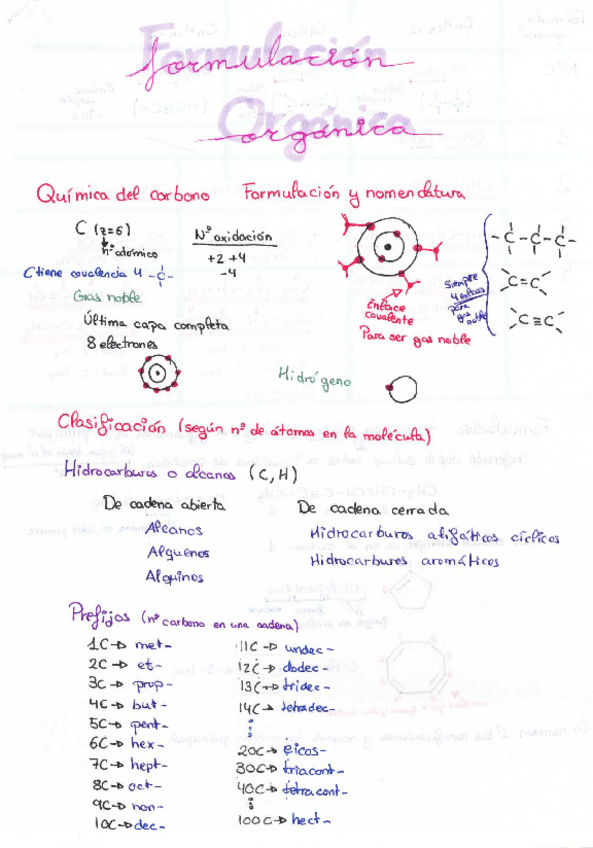 Formulación
Orgánica
Química del carbono Formulación y nomenclatura
C (z=6)
nº atómico
Nº oxidación
+2 +4
-4
C tiene covalencia 4 -C-
Gas noble
Última capa completa
8 electrones
Enlace
covalente
Para ser gas noble
Siempre
4 enlaces
para
gas
noble
-C-C-C-
C=C
C≡C
Hidrógeno
Clasificación (según nº de átomos en la molécula)
Hidrocarburos o alcanos (C, H)
De cadena abierta
Alcanos
Alquenos
Alquinos
De cadena cerrada
Hidrocarburos alifáticos cíclicos
Hidrocarburos aromáticos
Prefijos (nº carbono en una cadena)
1C→ met-
2C→ et-
3C→ prop-
4C→ but-
5C→ pent-
6C→ hex-
7C→ hept-
8C→ oct-
9C→ non-
10C→ dec-
11C→ undec-
12C→ dodec-
13C→ tridec-
14C→ tetradec-
20C→ eicos-
30C→ triacont-
40C→ tetracont-
100C→ hect-